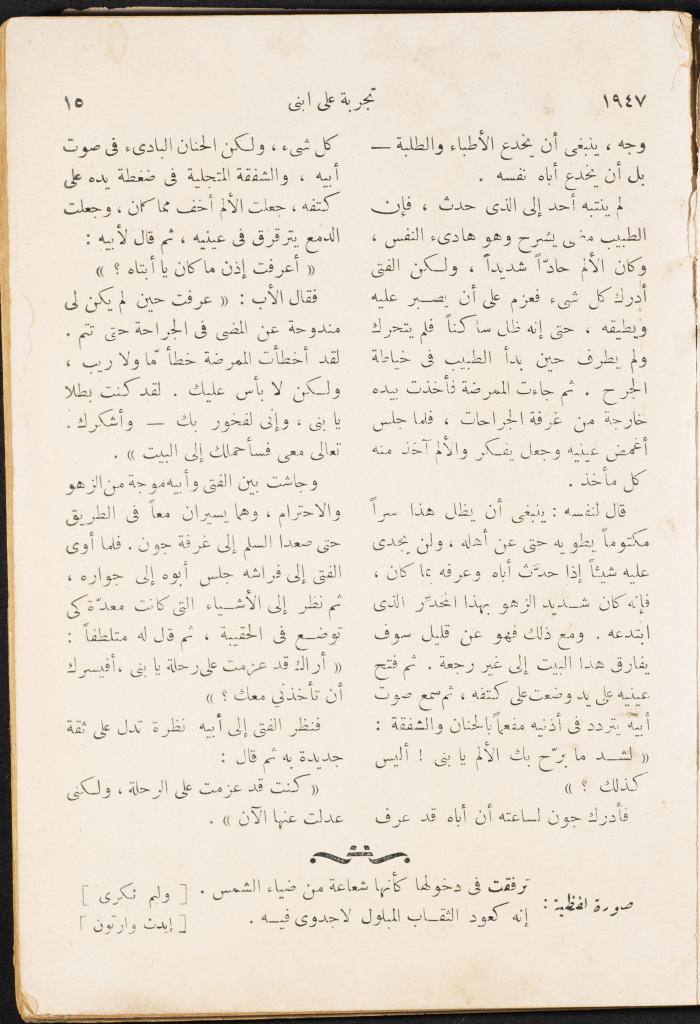 ١٩٤٧
تجربة على ابنى
١٥
وجه ، ينبغى أن يخدع الأطباء والطلبة —
بل أن يخدع أباه نفسه .
لم ينتبه أحد إلى الذى حدث ، فإن
الطبيب مضى يشرح وهو هادىء النفس ،
وكان الألم حادّاً شديداً ، ولكن الفتى
أدرك كل شىء فعزم على أن يصبر عليه
ويطيقه ، حتى إنه ظل ساكناً فلم يتحرك
ولم يطرف حين بدأ الطبيب فى خياطة
الجرح . ثم جاءت الممرضة فأخذت بيده
خارجة من غرفة الجراحات ، فلما جلس
أغمض عينيه وجعل يفكر والألم آخذ منه
كل مأخذ .
قال لنفسه : ينبغى أن يظل هذا سراً
مكتوماً يطويه حتى عن أهله ، ولن يجدى
عليه شيئاً إذا حدَّث أباه وعرفه بما كان ،
فإنه كان شديد الزهو بهذا المخدّر الذى
ابتدعه . ومع ذلك فهو عن قليل سوف
يفارق هذا البيت إلى غير رجعة . ثم فتح
عينيه على يد وضعت على كتفه ، ثم سمع صوت
أبيه يتردد فى أذنيه مفعماً بالحنان والشفقة :
« لشد ما برّح بك الألم يا بنى ! أليس
كذلك ؟ »
فأدرك جون لساعته أن أباه قد عرف
كل شىء ، ولكن الحنان البادىء فى صوت
أبيه ، والشفقة المتجلية فى ضغطة يده على
كتفه ، جعلت الألم أخف مما كان ، وجعلت
الدمع يترقرق فى عينيه ، ثم قال لأبيه :
« أعرفت إذن ما كان يا أبتاه ؟ »
فقال الأب : « عرفت حين لم يكن لى
مندوحة عن المضى فى الجراحة حتى تتم .
لقد أخطأت الممرضة خطأ مّا ولا ريب ،
ولكن لا بأس عليك . لقد كنت بطلا
يا بنى ، وإنى لفخور بك — وأشكرك .
تعالى معى فسأحملك إلى البيت » .
وجاشت بين الفتى وأبيه موجة من الزهو
والاحترام ، وهما يسيران معاً فى الطريق
حتى صعدا السلم إلى غرفة جون . فلما أوى
الفتى إلى فراشه جلس أبوه إلى جواره ،
ثم نظر إلى الأشياء التى كانت معدّة كى
توضع فى الحقيبة ، ثم قال له متلطفاً :
« أراك قد عزمت على رحلة يا بنى ، أفيسرك
أن تأخذني معك ؟ »
فنظر الفتى إلى أبيه نظرة تدل على ثقة
جديدة به ثم قال :
« كنت قد عزمت على الرحلة ، ولكنى
عدلت عنها الآن » .
صورة لفظية :
ترفقت فى دخولها كأنها شعاعة من ضياء الشمس . [ وليم ثكرى ]
إنه كعود الثقاب المبلول لاجدوى فيه . [ إيدث وارتون ]